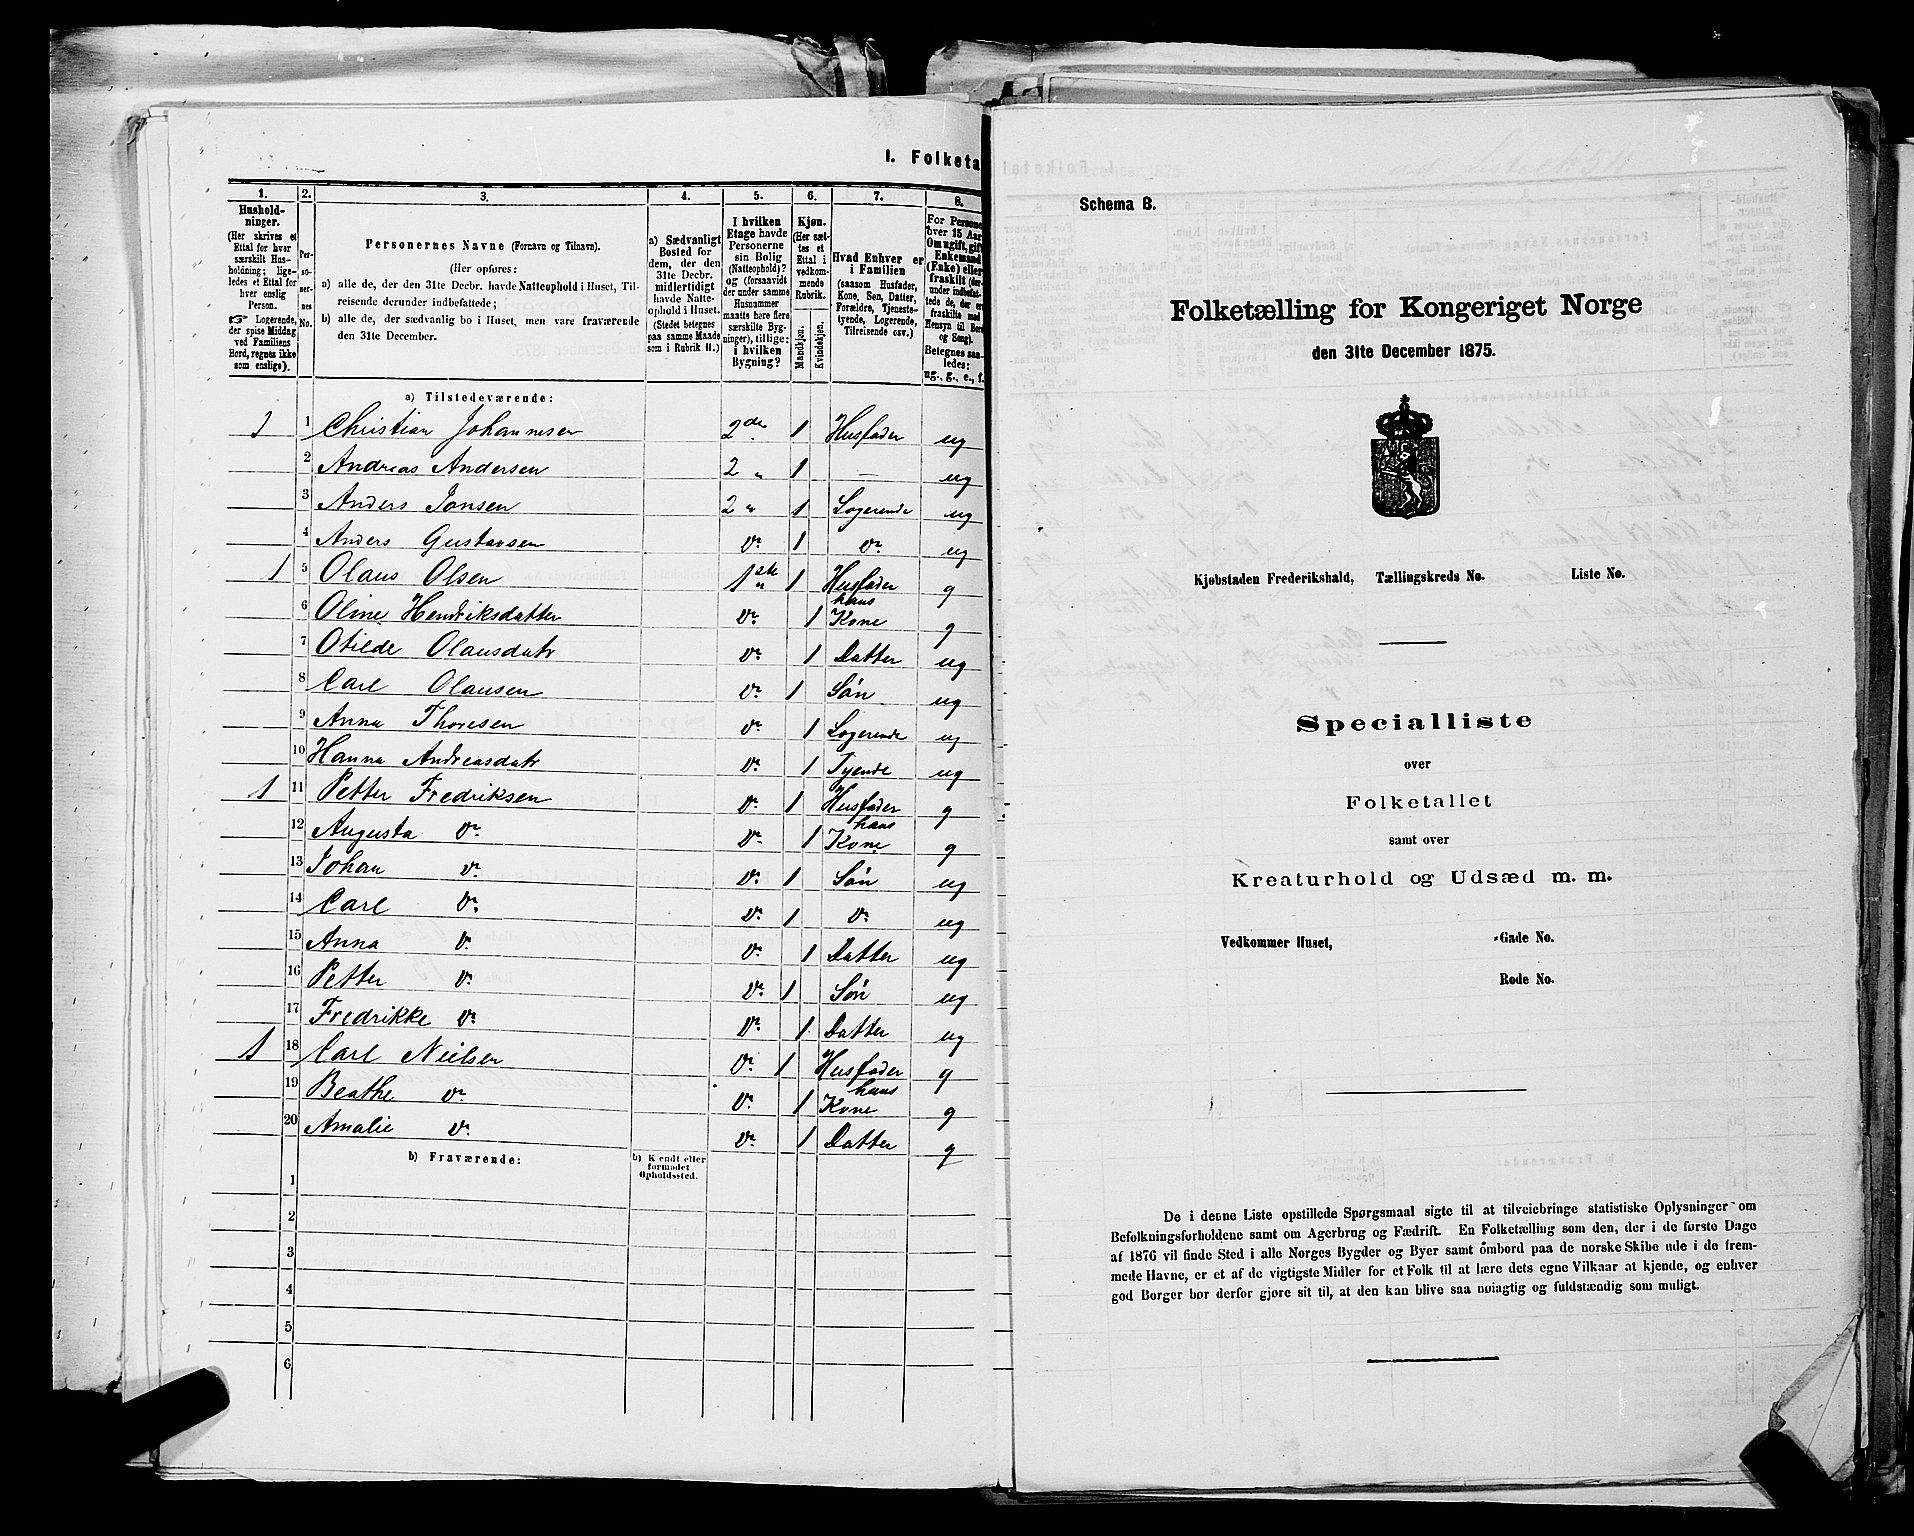 I. Folketa
1. 2. 3. 4. 5. 6. 7. 8.
Hushold-
ninger.
(Her skrives et
Ettal for hver
særskilt Hus-
holdning; lige-
ledes et Ettal for
hver enslig
Person.
Logerende,
der spise Middag
ved Familiens
Bord, regnes ikke
som enslige).
Per-
so-
ner-
nes
No.
Personernes Navne (Fornavn og Tilnavn).
(Her opføres:
a) alle de, der den 31te Decbr. havde Natteophold i Huset, Til-
reisende derunder indbefattede;
b) alle de, der sædvanlig bo i Huset, men vare fraværende
den 31te December.
a) Sædvanligt
Bosted for
dem, der den
31te Decbr.
midlertidigt
havde Natte-
ophold i Huset.
(Stedet betegnes
paa samme Maade
som i Rubrik 11.)
I hvilken
Etage havde
Personerne
sin Bolig
(Natteophold)?
og (forsaavidt
der under samme
Husnummer
maatte høre flere
særskilte Byg-
ninger), tillige:
i hvilken
Bygning?
Kjøn.
(Her sæt-
tes et
Ettal i
vedkom-
mende
Rubrik.
Mandkjøn.
Kvindekjøn.
Hvad Enhver er
i Familien
(saasom Husfader,
Kone, Søn, Datter,
Forældre, Tjeneste-
tyende, Logerende,
Tilreisende osv.)
For Persone
over 15 Aar
Om ugift, gift
Enkemand
(Enke) eller
fraskilt (der-
under indbefat-
tede de, der er
fraskilte med
Hensyn til Bord
og Seng).
Betegnes saa-
ledes:
ug., g., e., f.
a) Tilstedeværende:
1 1 Christian Johannesen 2de 1 Husfader ug
2 Andreas Andersen 2 " 1 — ug
3 Anders Jansen 2 " 1 Logerende ug
4 Anders Gustavsen do 1 do ug
1 5 Olaus Olsen 1ste 1 Husfader g
6 Oline Hendriksdatter do 1 hans Kone g
7 Otilde Olausdatr do 1 Datter ug
8 Carl Olausen do 1 Søn ug
9 Anna Thoresen do 1 Logerende ug
10 Hanna Andreasdatr do 1 Tyende ug
1 11 Petter Fredriksen do 1 Husfader g
12 Augusta do do 1 hans Kone g
13 Johan do do 1 Søn ug
14 Carl do do 1 do ug
15 Anna do do 1 Datter ug
16 Petter do do 1 Søn ug
17 Fredrikke do do 1 Datter ug
1 18 Carl Nielsen do 1 Husfader g
19 Beathe do do 1 hans Kone g
20 Amalie do do 1 Datter g
b) Fraværende:
b) Kjendt eller
formodet
Opholdssted.
1
2
3
4
5
6
Schema B.
Folketælling for Kongeriget Norge
den 31te December 1875.
Kjøbstaden Frederikshald, Tællingskreds No. Liste No.
Specialliste
over
Folketallet
samt over
Kreaturhold og Udsæd m. m.
Vedkommer Huset, -Gade No.
Rode No.
De i denne Liste opstillede Spørgsmaal sigte til at tilveiebringe statistiske Oplysninger om
Befolkningsforholdene samt om Agerbrug og Fædrift. En Folketælling som den, der i de første Dage
af 1876 vil finde Sted i alle Norges Bygder og Byer samt ombord paa de norske Skibe ude i de frem-
mede Havne, er et af de vigtigste Midler for et Folk til at lære dets egne Vilkaar at kjende, og enhver
god Borger bør derfor gjøre sit til, at den kan blive saa nøiagtig og fuldstændig som muligt.